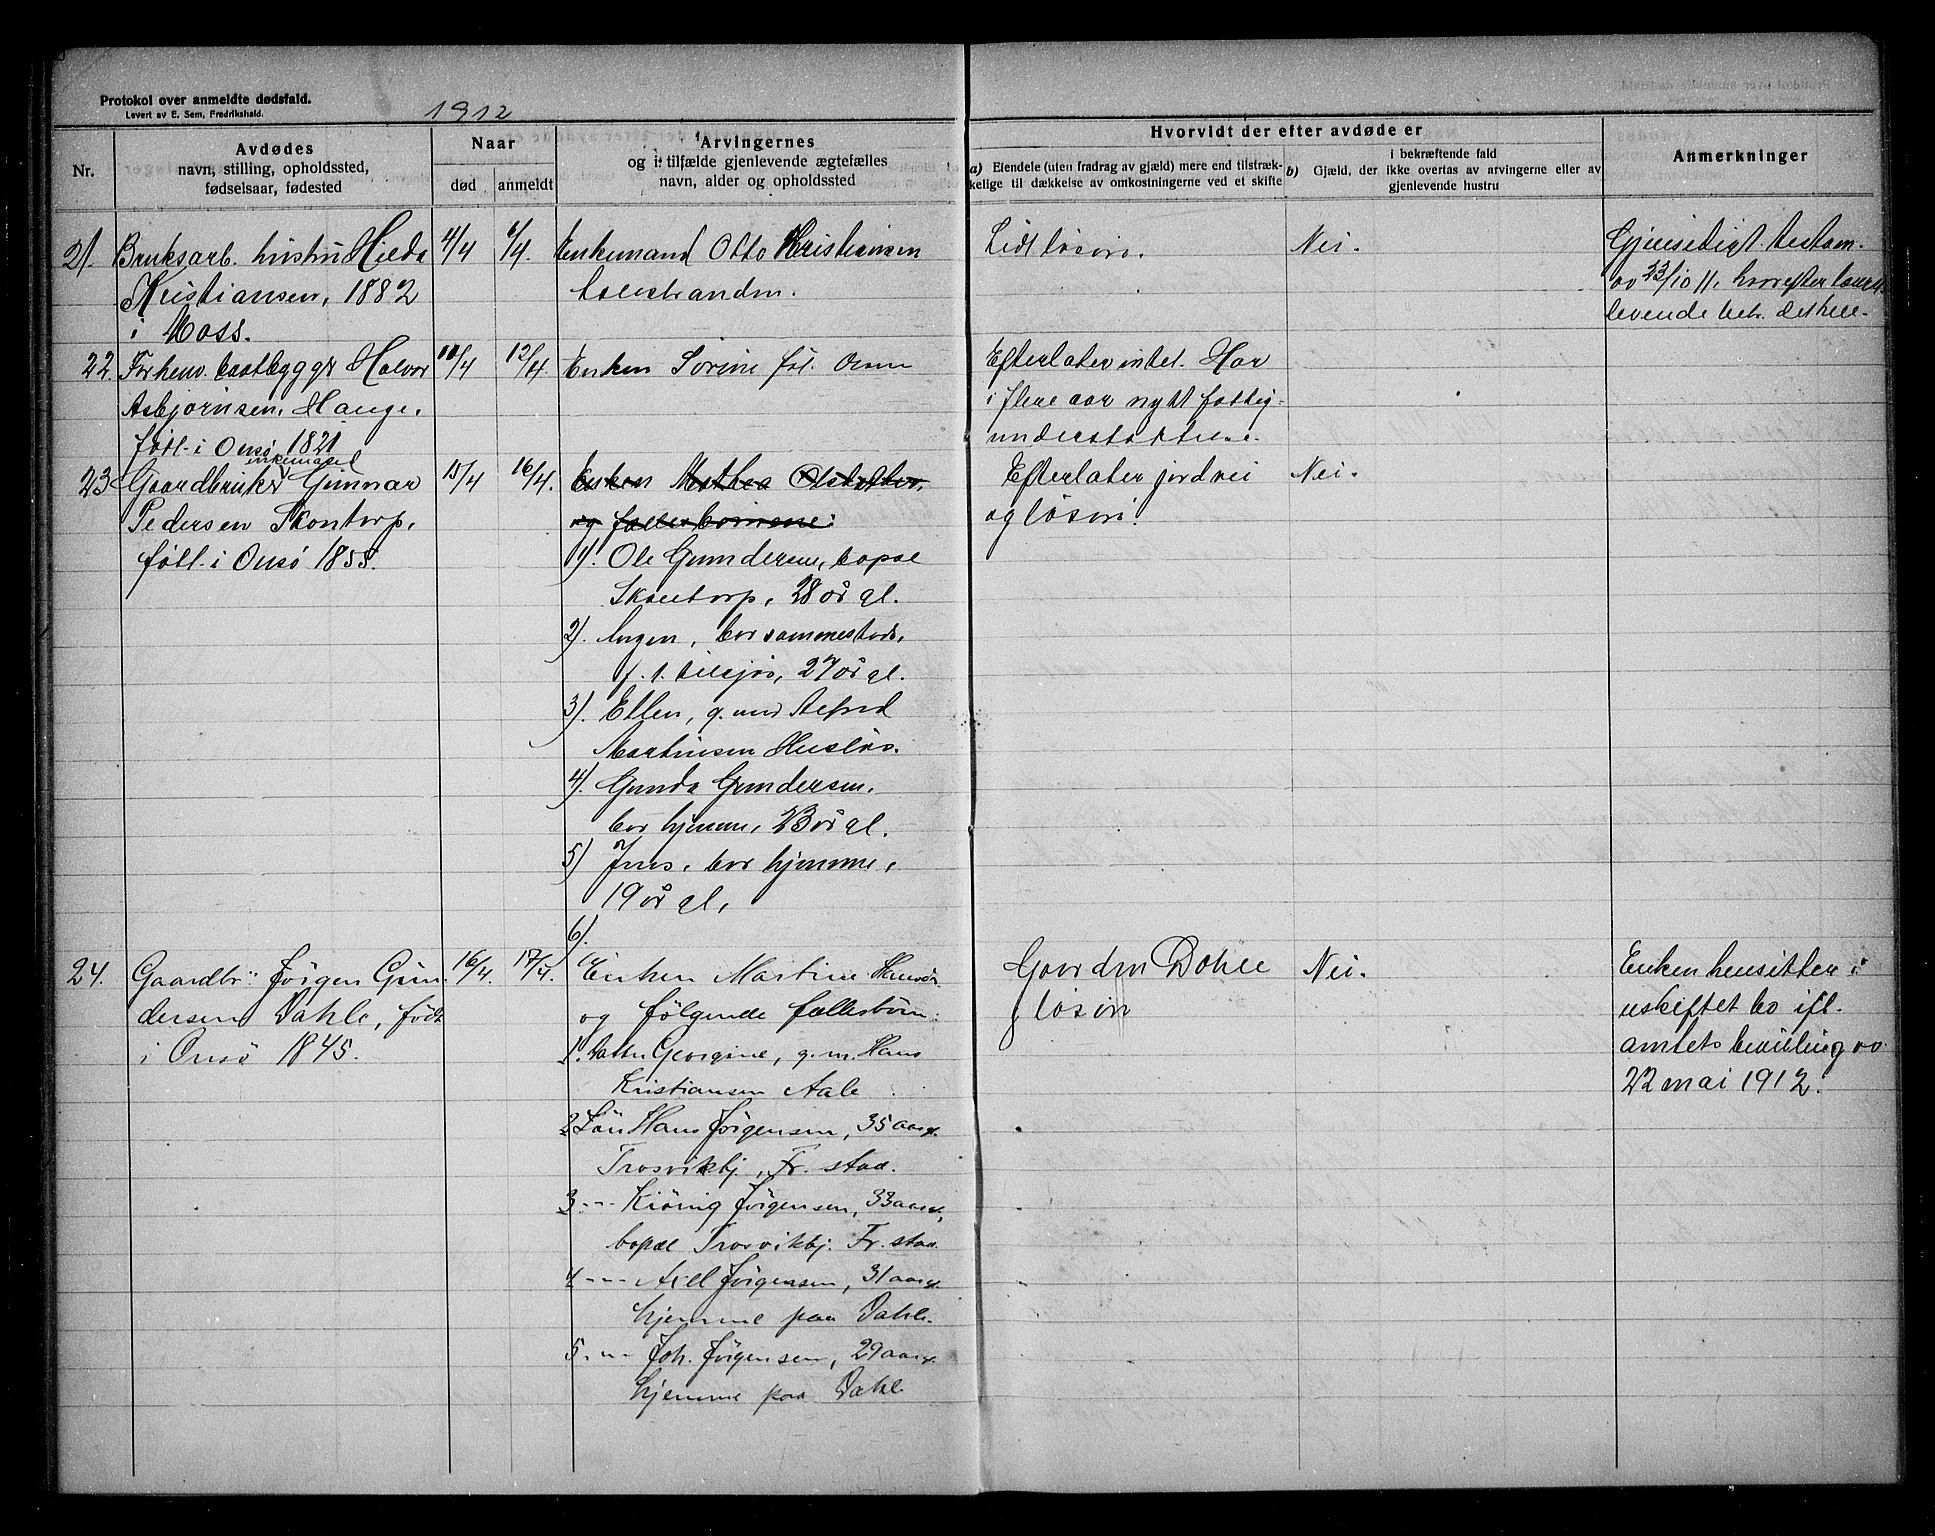 Protokol over anmeldte dødsfald.
Levert av E. Sem, Fredrikshald.
1912
Nr.
Avdødes
navn, stilling, opholdssted,
fødselsaar, fødested
Naar
død
anmeldt
Arvingernes
og i tilfælde gjenlevende ægtefælles
navn, alder og opholdssted
Hvorvidt der efter avdøde er
a) Eiendele (uten fradrag av gjæld) mere end tilstræk-
kelige til dækkelse av omkostningerne ved et skifte
i bekræftende fald
b) Gjæld, der ikke overtas av arvingerne eller av
gjenlevende hustru
Anmerkninger
21. Bruksarb. hustru Hilda
Kristiansen, 1882
i Moss.
4/4
6/4.
Enkemand Otto Kristiansen
Lidt løsøre.
Nei.
Gjensidigt testam.
av 23/10 11, hvorefter længst-
levende beh. det hele.
22. Forhenv. baatbygger Halvor
Asbjørnsen, Hauge,
født i Onsø 1821
10/4
12/4.
Enken Sørine
Efterlater intet. Har
i flere aar nydt fattig-
understøttelse.
23 Gaardbruker enkemand Gunnar
Pedersen Skontorp,
født i Onsø 1855.
15/4
16/4.
Enken Mathea
og fællesbørnene:
1). Ole Gundersen, bopæl
Skontorp, 28 år gl.
2). Ingen, bor sammesteds,
f. t. tilsjøs, 27 år gl.
3). Ellen, g. med Alfred
Martinsen Husløs.
4). Gunda Gundersen,
bor hjemme, 23 år gl.
5) Jens, bor hjemme,
19 år gl,
6).
Efterlater jordvei
og løsøre.
Nei.
24. Gaardbr. Jørgen Gun-
dersen Dahle, født
i Onsø 1845.
16/4.
17/4.
Enken Martine Hansdr.
og følgende fællesbørn:
1. Datter Georgine, g. m. Hans
Kristiansen Aale
2. Søn Hans Jørgensen, 35 aar gl.
Trosvikbj., Fr. stad.
3. -"- Kiönig Jørgensen, 33 aar gl,
bopæl Trosvikbj. Fr. stad.
4 -"- Axel Jørgensen, 31 aar gl.
hjemme paa Dahle.
5. -"- Joh. Jørgensen, 29 aar gl.
hjemme paa Dahle
Gaarden Dahle
og løsøre
Nei.
Enken hensitter i
uskiftet bo ifl.
amtets bevilling av
22 mai 1912.